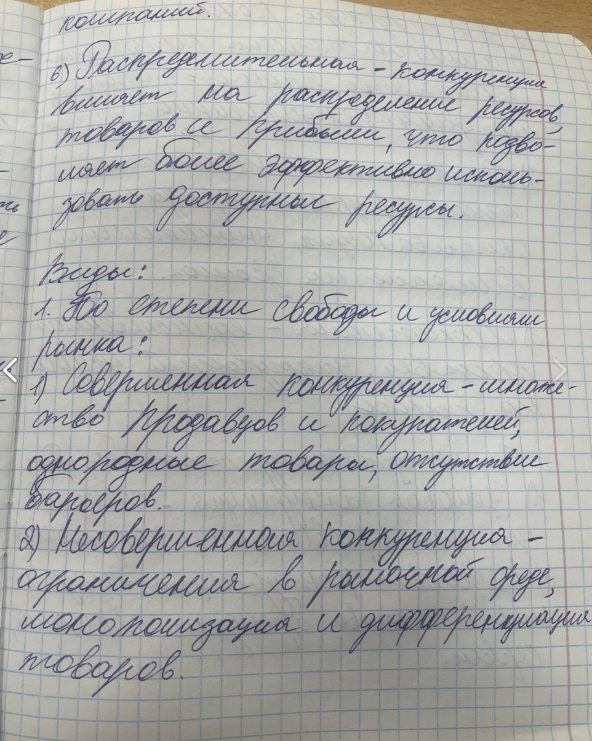 компаний.
6) Распределительная - конкуренция
влияет на распределение ресурсов,
товаров и прибыли, что позво-
ляет более эффективно исполь-
зовать доступные ресурсы.
Виды:
1. По степени свободы и условиям
рынка:
1) Совершенная конкуренция - множе-
ство продавцов и покупателей,
однородные товары, отсутствие
барьеров.
2) Несовершенная конкуренция -
ограничения в рыночной среде,
монополизация и дифференциация
товаров.